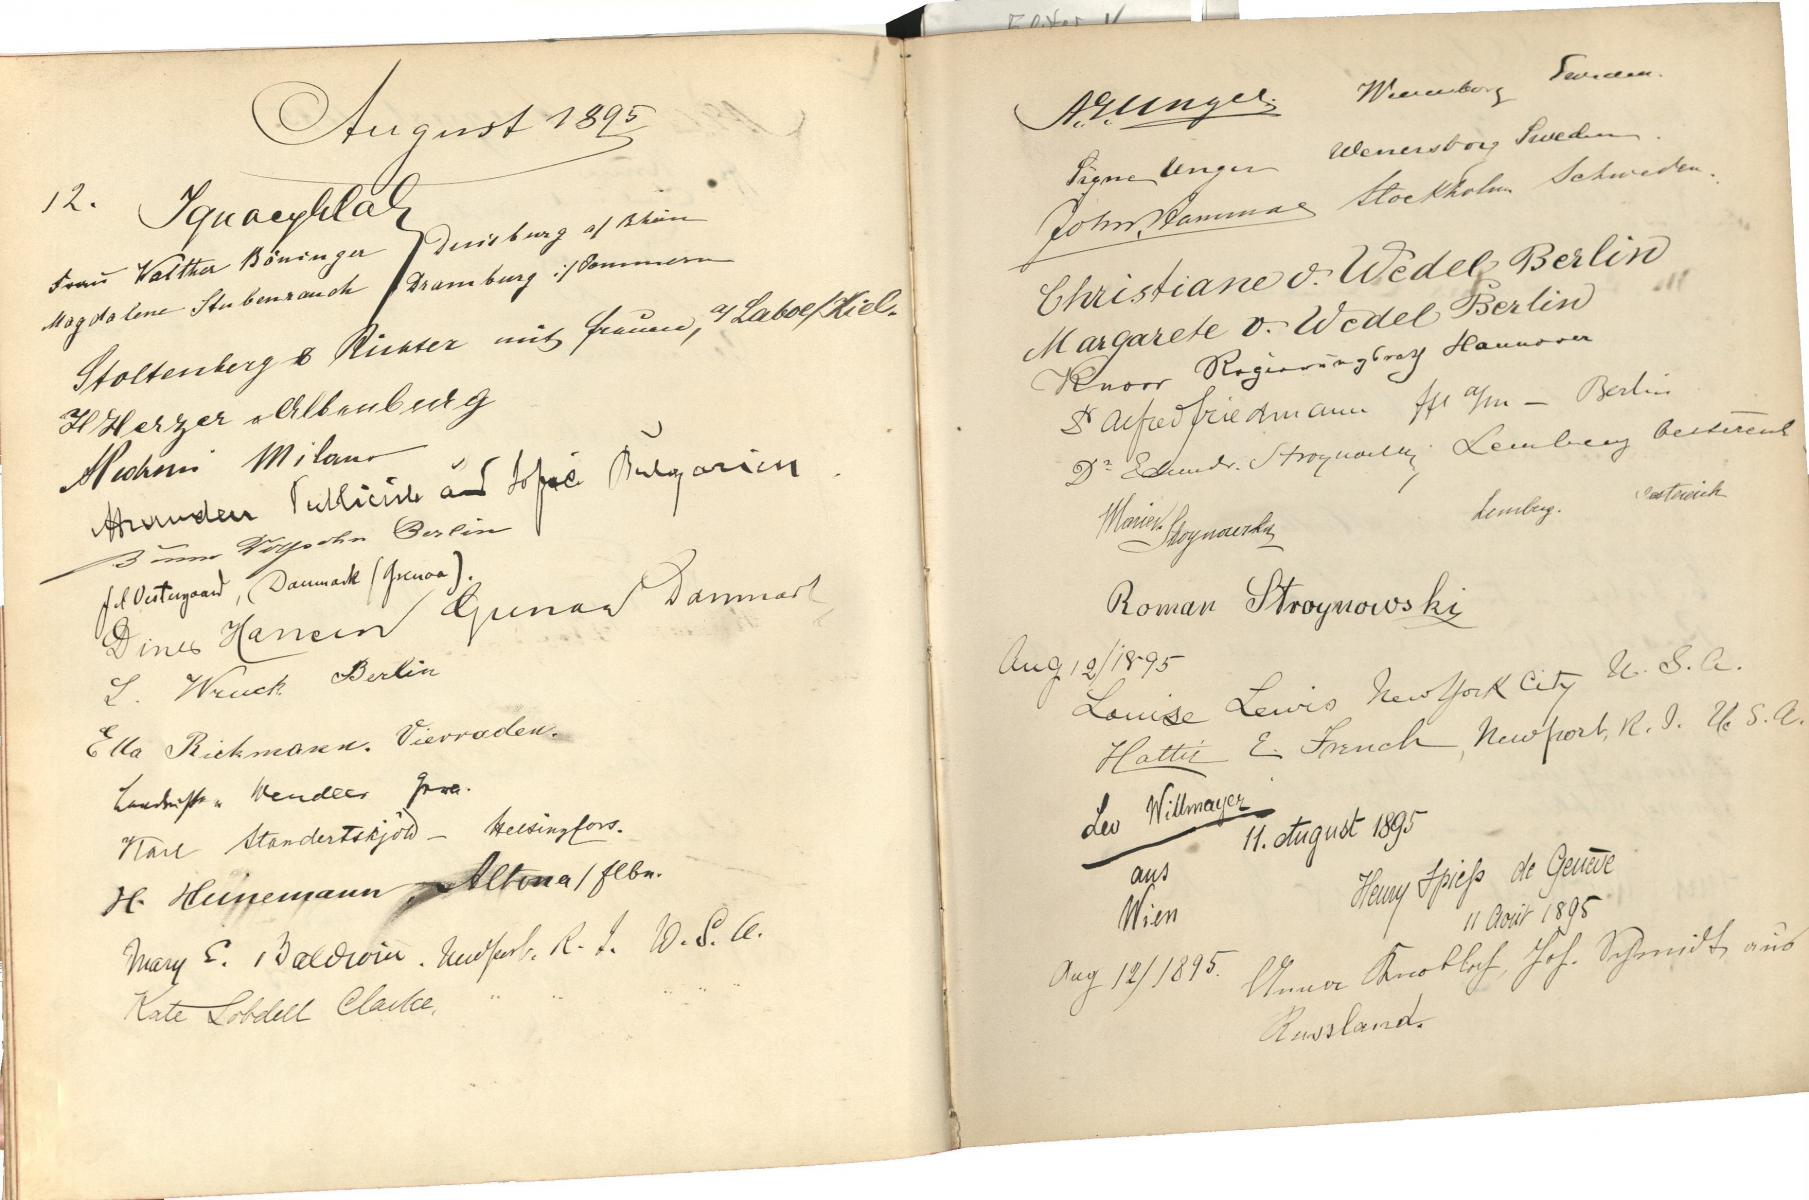 August 1895
12.
Frau Walther Böninger Duisburg a/ Rhein
Magdalene Stubenrauch Dramburg i/ Pommern
Stoltenberg & Richter mit Frauen, a/ Laboe/Kiel.
H Herzer Altenburg
Milano
Publiciste aus Sofia Bulgarien
Berlin
Vestergaard, Danmark (Grenaa).
Dines Hansen Grenaa Danmark
L. Wruck Berlin
Ella Rickmann. Vierraden.
Karl Standertskjöld – Helsingfors.
H. Heinemann, Altona/Elbe.
Mary E. Baldwin. Newport. R. I. U. S. A.
Kate Lobdell Clarke, " " " "
A. E. Unger. Wenersborg Sweden.
Signe Unger Wenersborg Sweden.
John Stockholm Schweden.
Christiane v. Wedel Berlin
Margarete v. Wedel Berlin
Knoor Regierungsrath Hannover
Dr Alfred Friedmann Berlin
Dr. Stroynowski, Lemberg Oesterreich
Stroynowska Lemberg. Oesterreich
Roman Stroynowski
Aug 12/1895
Louise Lewis New York City U. S. A.
Hattie E. French, Newport, R. I. U. S. A.
Leo Willmayer
11. August 1895
aus
Wien
Henry Spieß de Genève
11 Août 1895
Aug 12/1895.
Anna Knobloch, Joh. Schmidt aus
Russland.